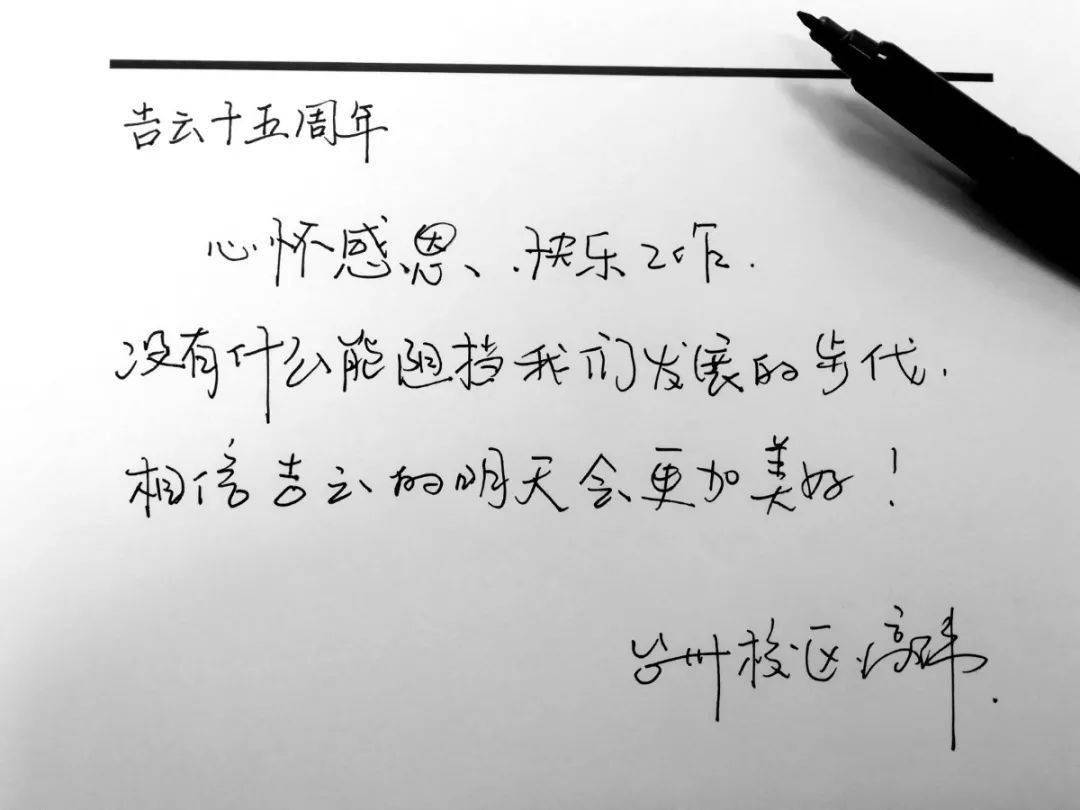 吉云十五周年
心怀感恩、快乐工作.
没有什么能阻挡我们发展的步代.
相信吉云的明天会更加美好！
州校区